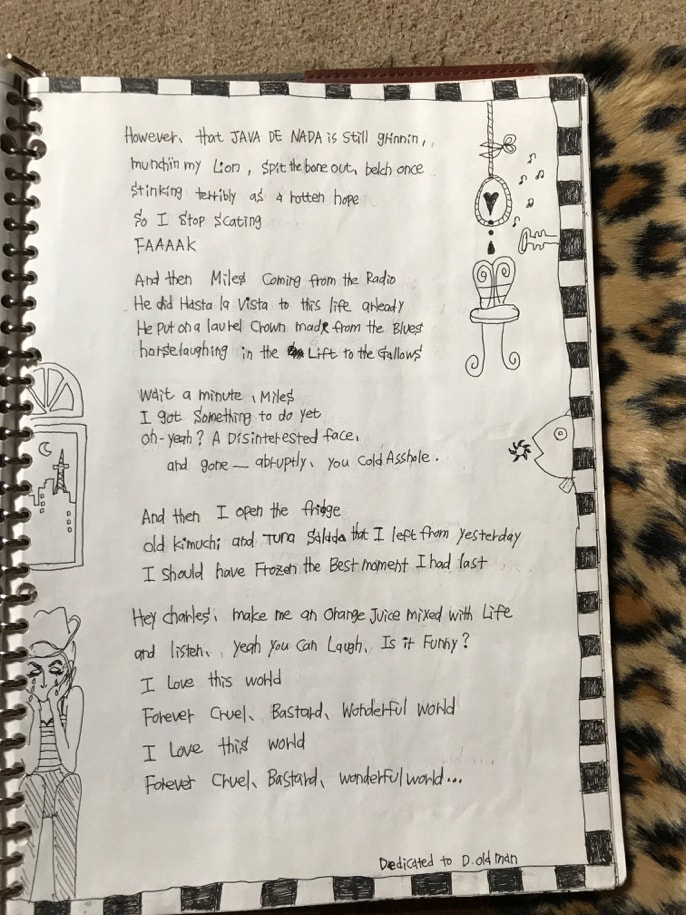 However、that JAVA DE NADA is still grinnin,,
munchin my Lion, spit the bone out, belch once
stinking terribly as a rotten hope
So I stop scating
FAAAAK
And then Miles Coming from the Radio
He did Hasta la Vista to this life already
He put on a laurel Crown made from the Blues
horselaughing in the Lift to the Gallows
Wait a minute、Miles
I got Something to do yet
oh-yeah? A Disinterested face、
and gone — abruptly、you Cold Asshole.
And then I open the fridge
old kimuchi and Tuna Salada that I left from yesterday
I should have Frozen the Best moment I had last
Hey charles、make me an Orange Juice mixed with Life
and listen、、yeah you Can Laugh、Is it Funny?
I Love this world
Forever Cruel、Bastard、Wonderful world
I Love this world
Forever Cruel、Bastard、wonderful world...
Dedicated to D.old man